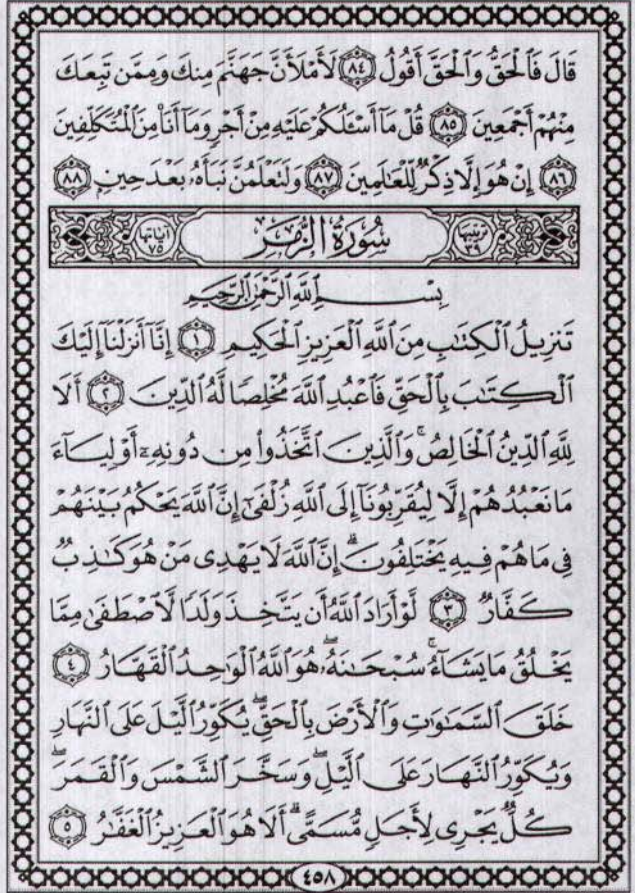 قَالَ فَٱلۡحَقُّ وَٱلۡحَقَّ أَقُولُ ٨٤ لَأَمۡلَأَنَّ جَهَنَّمَ مِنكَ وَمِمَّن تَبِعَكَ
مِنۡهُمۡ أَجۡمَعِينَ ٨٥ قُلۡ مَآ أَسۡـَٔلُكُمۡ عَلَيۡهِ مِنۡ أَجۡرٖ وَمَآ أَنَا۠ مِنَ ٱلۡمُتَكَلِّفِينَ
٨٦ إِنۡ هُوَ إِلَّا ذِكۡرٞ لِّلۡعَٰلَمِينَ ٨٧ وَلَتَعۡلَمُنَّ نَبَأَهُۥ بَعۡدَ حِينِۭ ٨٨
ترتيبها ٣٩ سُورَةُ الزُّمَرِ آياتها ٧٥
بِسۡمِ ٱللَّهِ ٱلرَّحۡمَٰنِ ٱلرَّحِيمِ
تَنزِيلُ ٱلۡكِتَٰبِ مِنَ ٱللَّهِ ٱلۡعَزِيزِ ٱلۡحَكِيمِ ١ إِنَّآ أَنزَلۡنَآ إِلَيۡكَ
ٱلۡكِتَٰبَ بِٱلۡحَقِّ فَٱعۡبُدِ ٱللَّهَ مُخۡلِصٗا لَّهُ ٱلدِّينَ ٢ أَلَا
لِلَّهِ ٱلدِّينُ ٱلۡخَالِصُۚ وَٱلَّذِينَ ٱتَّخَذُواْ مِن دُونِهِۦٓ أَوۡلِيَآءَ
مَا نَعۡبُدُهُمۡ إِلَّا لِيُقَرِّبُونَآ إِلَى ٱللَّهِ زُلۡفَىٰٓ إِنَّ ٱللَّهَ يَحۡكُمُ بَيۡنَهُمۡ
فِي مَا هُمۡ فِيهِ يَخۡتَلِفُونَۗ إِنَّ ٱللَّهَ لَا يَهۡدِي مَنۡ هُوَ كَٰذِبٞ
كَفَّارٞ ٣ لَّوۡ أَرَادَ ٱللَّهُ أَن يَتَّخِذَ وَلَدٗا لَّٱصۡطَفَىٰ مِمَّا
يَخۡلُقُ مَا يَشَآءُۚ سُبۡحَٰنَهُۥۖ هُوَ ٱللَّهُ ٱلۡوَٰحِدُ ٱلۡقَهَّارُ ٤
خَلَقَ ٱلسَّمَٰوَٰتِ وَٱلۡأَرۡضَ بِٱلۡحَقِّۖ يُكَوِّرُ ٱلَّيۡلَ عَلَى ٱلنَّهَارِ
وَيُكَوِّرُ ٱلنَّهَارَ عَلَى ٱلَّيۡلِۖ وَسَخَّرَ ٱلشَّمۡسَ وَٱلۡقَمَرَۖ
كُلّٞ يَجۡرِي لِأَجَلٖ مُّسَمًّىۗ أَلَا هُوَ ٱلۡعَزِيزُ ٱلۡغَفَّٰرُ ٥
٤٥٨